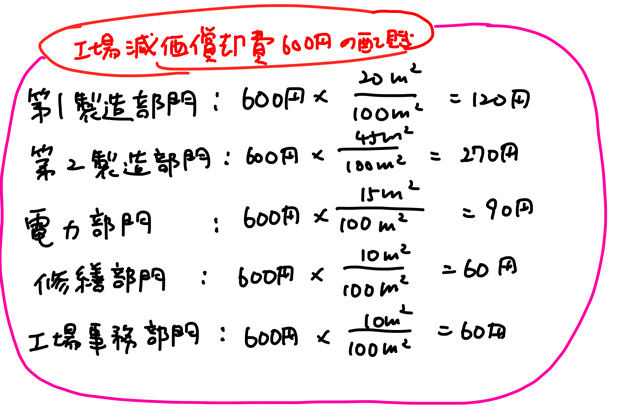 工場減価償却費600円の配賦
第1製造部門：600円×20m²/100m²＝120円
第2製造部門：600円×45m²/100m²＝270円
電力部門：600円×15m²/100m²＝90円
修繕部門：600円×10m²/100m²＝60円
工場事務部門：600円×10m²/100m²＝60円